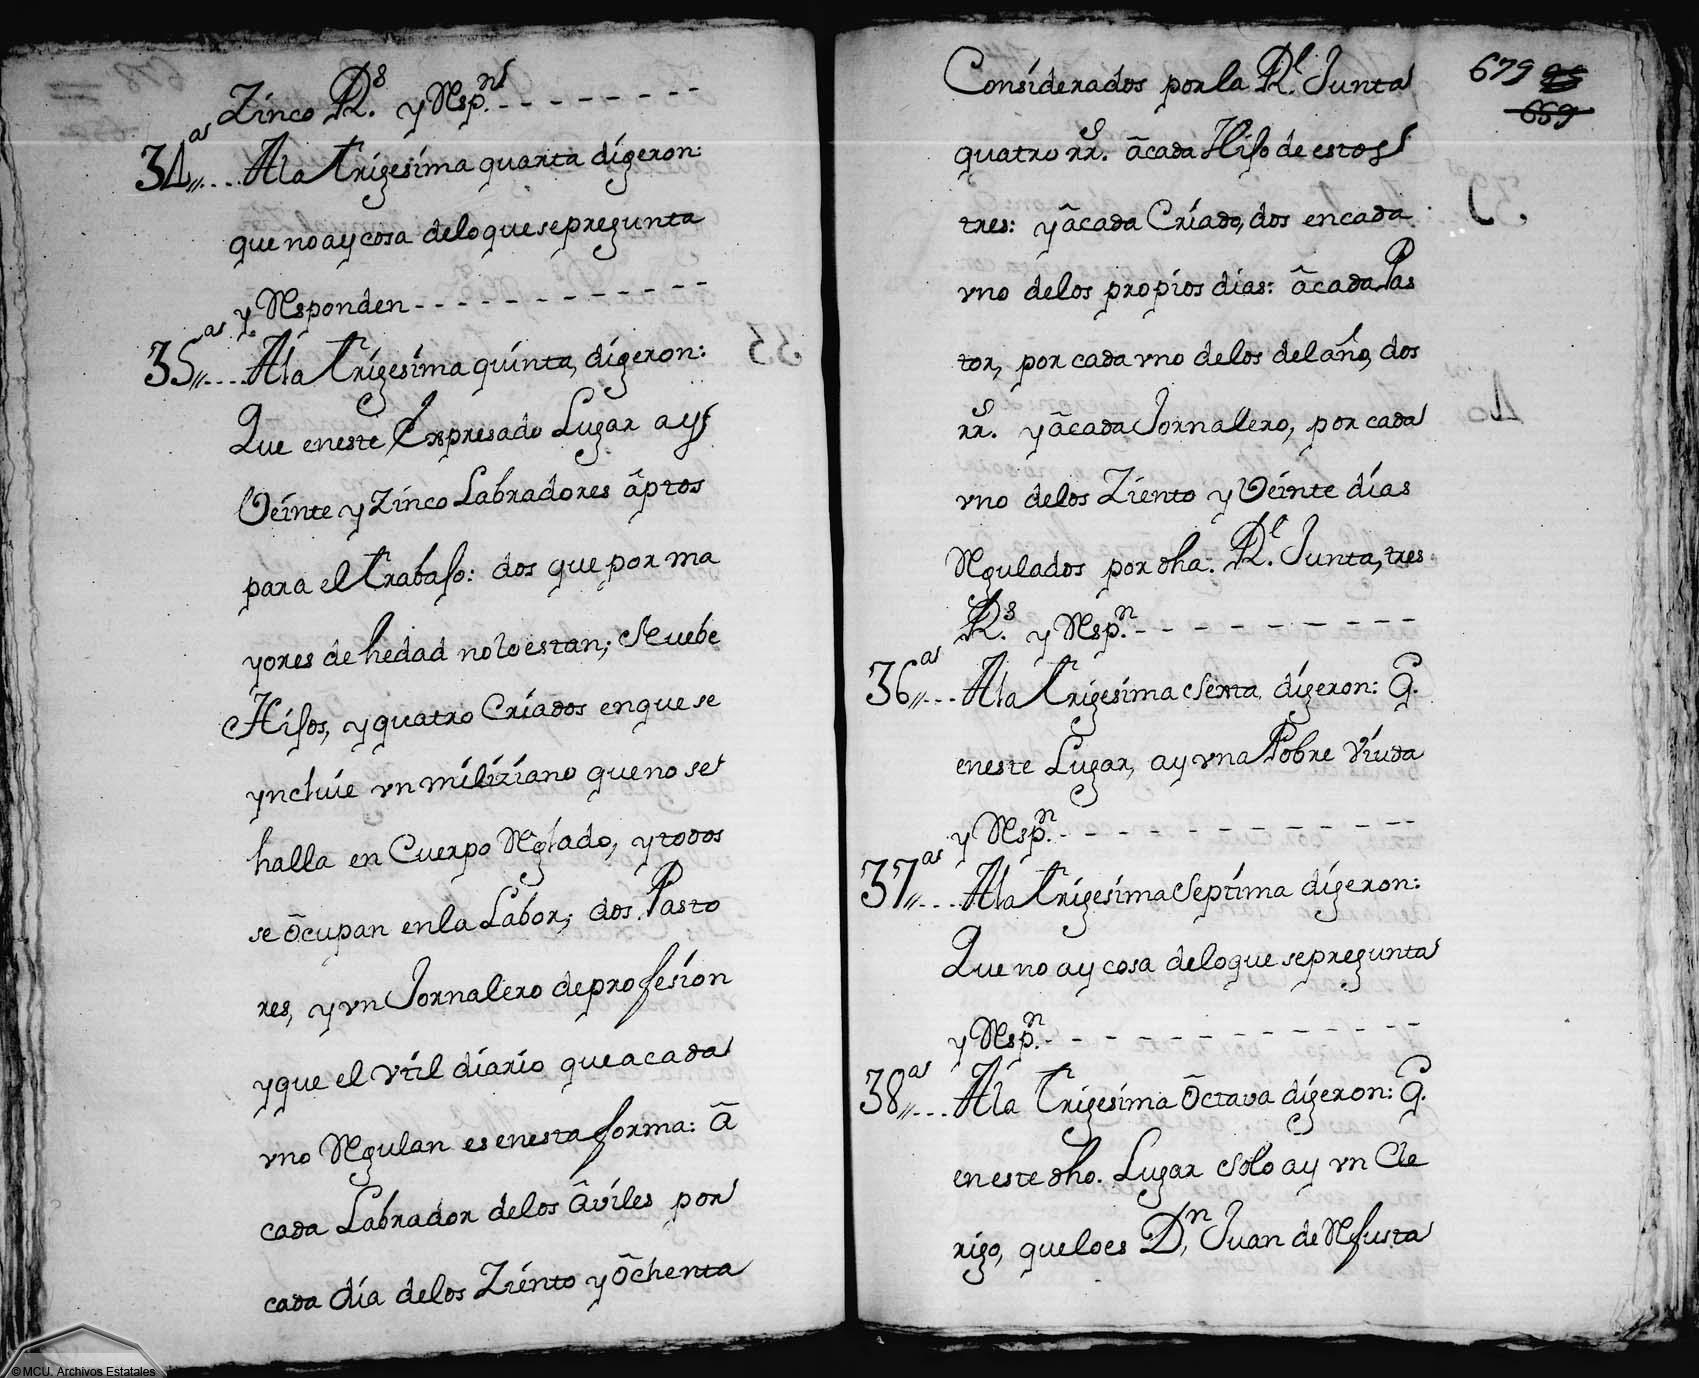 Zinco R.s y Resp.n
34as.. Ala trigesima quarta digeron:
que no ay cosa delo que se pregunta
y Responden
35as.. Ala trigesima quinta, digeron:
Que en este Expresado Lugar ay
Veinte y Zinco Labradores âptos
para el trabajo: dos que por ma
yores de hedad no lo estan; Nuebe
Hijos, y quatro Criados en que se
ynclúie vn miliziano que no se
halla en Cuerpo Reglado, y todos
se ôcupan en la Labor; dos Pasto
res, y vn Jornalero de profesion
y que el vtil diario que a cada
vno Regulan es en esta forma: â
cada Labrador delos âviles por
cada día delos Ziento y ôchenta
679
659
Considerados por la R.l Junta
quatro rr.s âcada Hijo de estos
tres: y âcada Criado, dos en cada
vno delos propios dias: âcada Pas
tor, por cada vno delos del año, dos
rr.s y âcada Jornalero, por cada
vno delos Ziento y Veinte días
Regulados por dha. R.l Junta, tres
R.s y Resp.n
36as.. Ala trigesima Sexta digeron: Q.
en este Lugar, ay vna Pobre Viuda
y Resp.n
37as.. Ala trigesima Septima digeron:
Que no ay cosa delo que se pregunta
y Resp.n
38as.. Ala trigesima ôctava digeron: Q.
en este dho. Lugar solo ay vn Cle
rigo, que lo es D.n Juan de Refusta
© MCU. Archivos Estatales